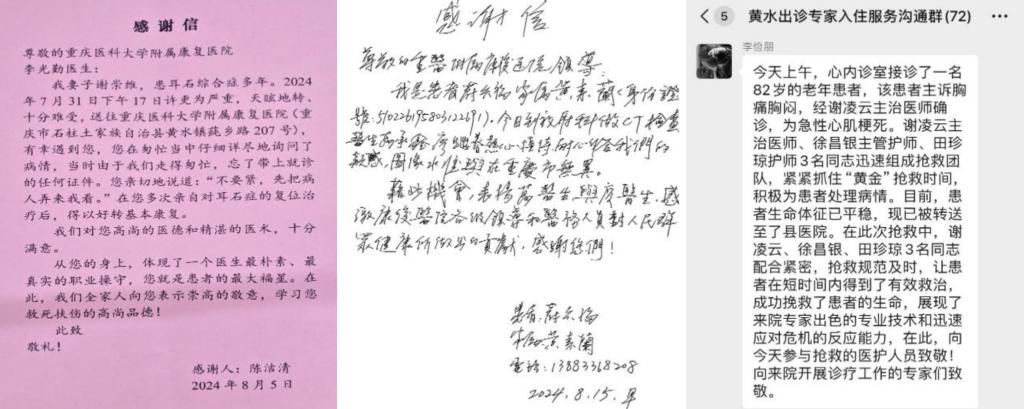 感谢信
尊敬的重庆医科大学附属康复医院
李光勤医生：
我妻子谢崇维，患耳石综合症多年。2024
年7月31日下午17日许更为严重，天眩地转、
十分难受，送往重庆医科大学附属康复医院（重庆
市石柱土家族自治县黄水镇莼乡路207号），
有幸遇到您，您在匆忙当中仔细详尽地询问了
病情，当时由于我们走得匆忙，忘了带上就诊
的任何证件。您亲切地说道：“不要紧，先把病
人弄来我看。”在您多次亲自对耳石的复位治
疗后，得以好转基本康复。
我们对您高尚的医德和精湛的医术，十分
满意。
从您的身上，体现了一个医生最朴素、最
真实的职业操守，您就是患者的最大福星。在
此，我们全家人向您表示崇高的敬意，学习您
救死扶伤的高尚品德！
此致
敬礼！
感谢人：陈洁清
2024年8月5日
感谢信
尊敬的重醫附屬康復医院領導：
我是患者 家属黄素蘭（身份證
號： ）今日到放射科做CT檢查
醫生 熱心 接待耐心 答我們的
疑惑，
藉此機會，表揚 醫生與 醫生，感
激康復醫院各級領導和醫務人員對人民群
眾健康所做出的貢獻，感謝您們！
患者：
黄素蘭
電话：13883368208
2024.8.15.
5 黄水出诊专家入住服务沟通群(72)
李俭朋
今天上午，心内诊室接诊了一名
82岁的老年患者，该患者主诉胸
痛胸闷，经谢凌云主治医师确
诊，为急性心肌梗死。谢凌云主
治医师、徐昌银主管护师、田珍
琼护师3名同志迅速组成抢救团
队，紧紧抓住“黄金”抢救时间，
积极为患者处理病情。目前，患
者生命体征已平稳，现已被转送
至了县医院。在此次抢救中，谢
凌云、徐昌银、田珍琼3名同志
配合紧密，抢救规范及时，让患
者在短时间内得到了有效救治，
成功挽救了患者的生命，展现了
来院专家出色的专业技术和迅速
应对危机的反应能力，在此，向
今天参与抢救的医护人员致敬！
向来院开展诊疗工作的专家们致
敬。